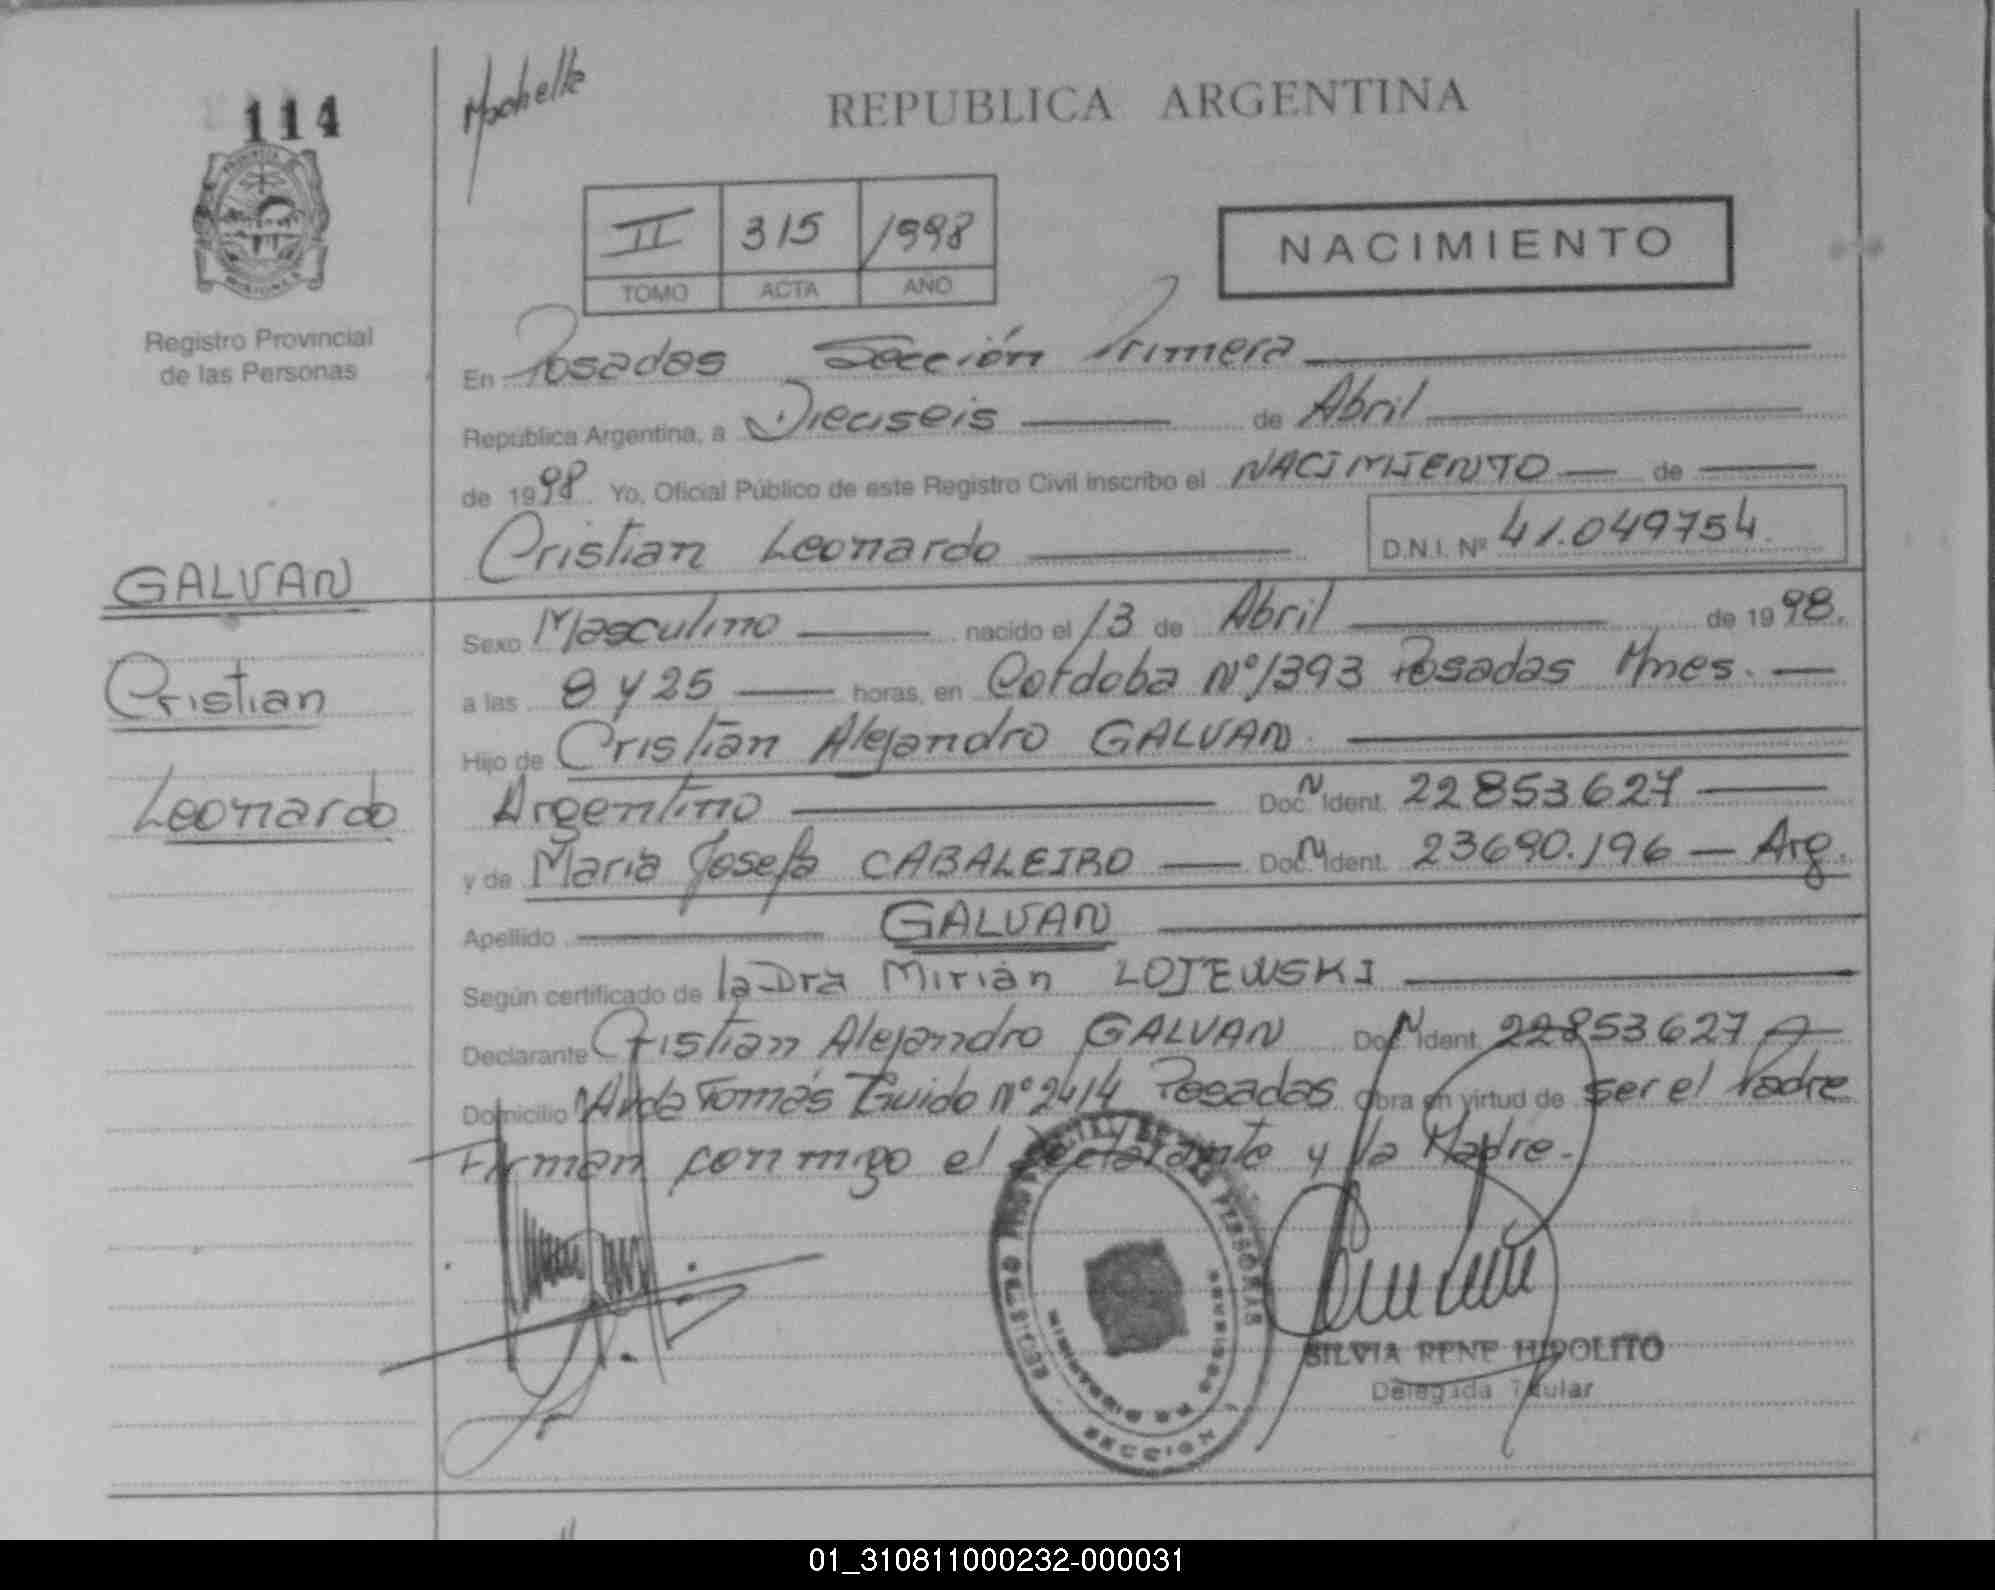 114
Mochelte
REPUBLICA ARGENTINA
II 315 1998
TOMO ACTA AÑO
NACIMIENTO
Registro Provincial
de las Personas
En Posadas Sección Primera
República Argentina, a Dieciseis de Abril
de 1998. Yo, Oficial Público de este Registro Civil inscribo el NACIMIENTO de
Cristian Leonardo D.N.I. Nº 41.049754.
GALVAN
Cristian
Leonardo
Sexo Masculino nacido el 13 de Abril de 1998.
a las 8 y 25 horas, en Cordoba Nº 1393 Posadas Mnes.
Hijo de Cristian Alejandro GALVAN
Argentino Doc. N Ident. 22853627
y de Maria Josefa CABALEIRO Doc. N Ident. 23690.196 - Arg.
Apellido GALVAN
Según certificado de la Dra Mirián LOJEWSKI
Declarante Cristian Alejandro GALVAN Doc. N Ident. 22853627
Domicilio Avda Tomás Guido Nº 2414 Posadas Obra en virtud de ser el Padre
Firman conmigo el declarante y la Madre.
REGISTRO PROVINCIAL DE LAS PERSONAS
SECCION
SILVIA RENE HIPOLITO
Delegada Titular
01_310811000232-000031